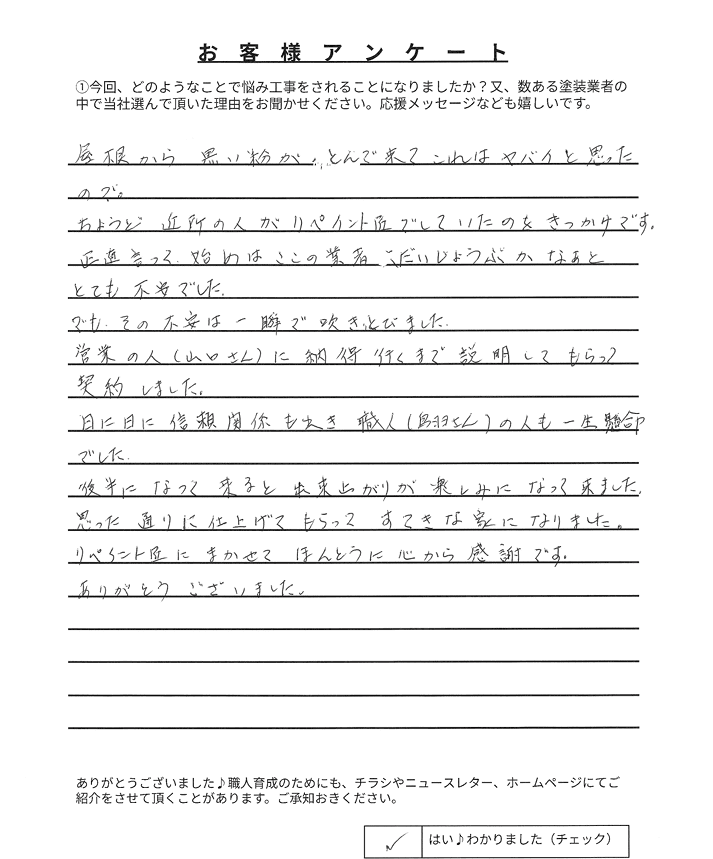 お客様アンケート
①今回、どのようなことで悩み工事をされることになりましたか？又、数ある塗装業者の
中で当社選んで頂いた理由をお聞かせください。応援メッセージなども嬉しいです。
屋根から 黒い粉が、とんで来て これは ヤバイと思った
ので。
ちょうど 近所の人が リペイント匠でしていたのをきっかけです。
正直言って、始めは ここの業者 だいじょうぶかなぁと
とても 不安でした。
でも、その不安は 一瞬で 吹きとびました。
営業の人(山口さん)に 納得行くまで 説明してもらって
契約しました。
日に日に 信頼関係も出き 職人(鳥羽さん)の人も一生懸命
でした。
後半に なって 来ると 出来上がりが 楽しみに なって来ました。
思った 通りに 仕上げてもらって すてきな家になりました。
リペイント匠に まかせて ほんとうに 心から 感謝です。
ありがとう ございました。
ありがとうございました♪職人育成のためにも、チラシやニュースレター、ホームページにてご
紹介をさせて頂くことがあります。ご承知おきください。
✓ はい♪わかりました（チェック）